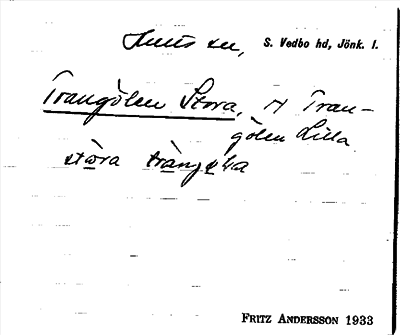 sn, S. Vedbo hd, Jönk. l.
Trangölen Stora, H Tran-
gölen Lilla
stɷra
FRITZ ANDERSSON 1933